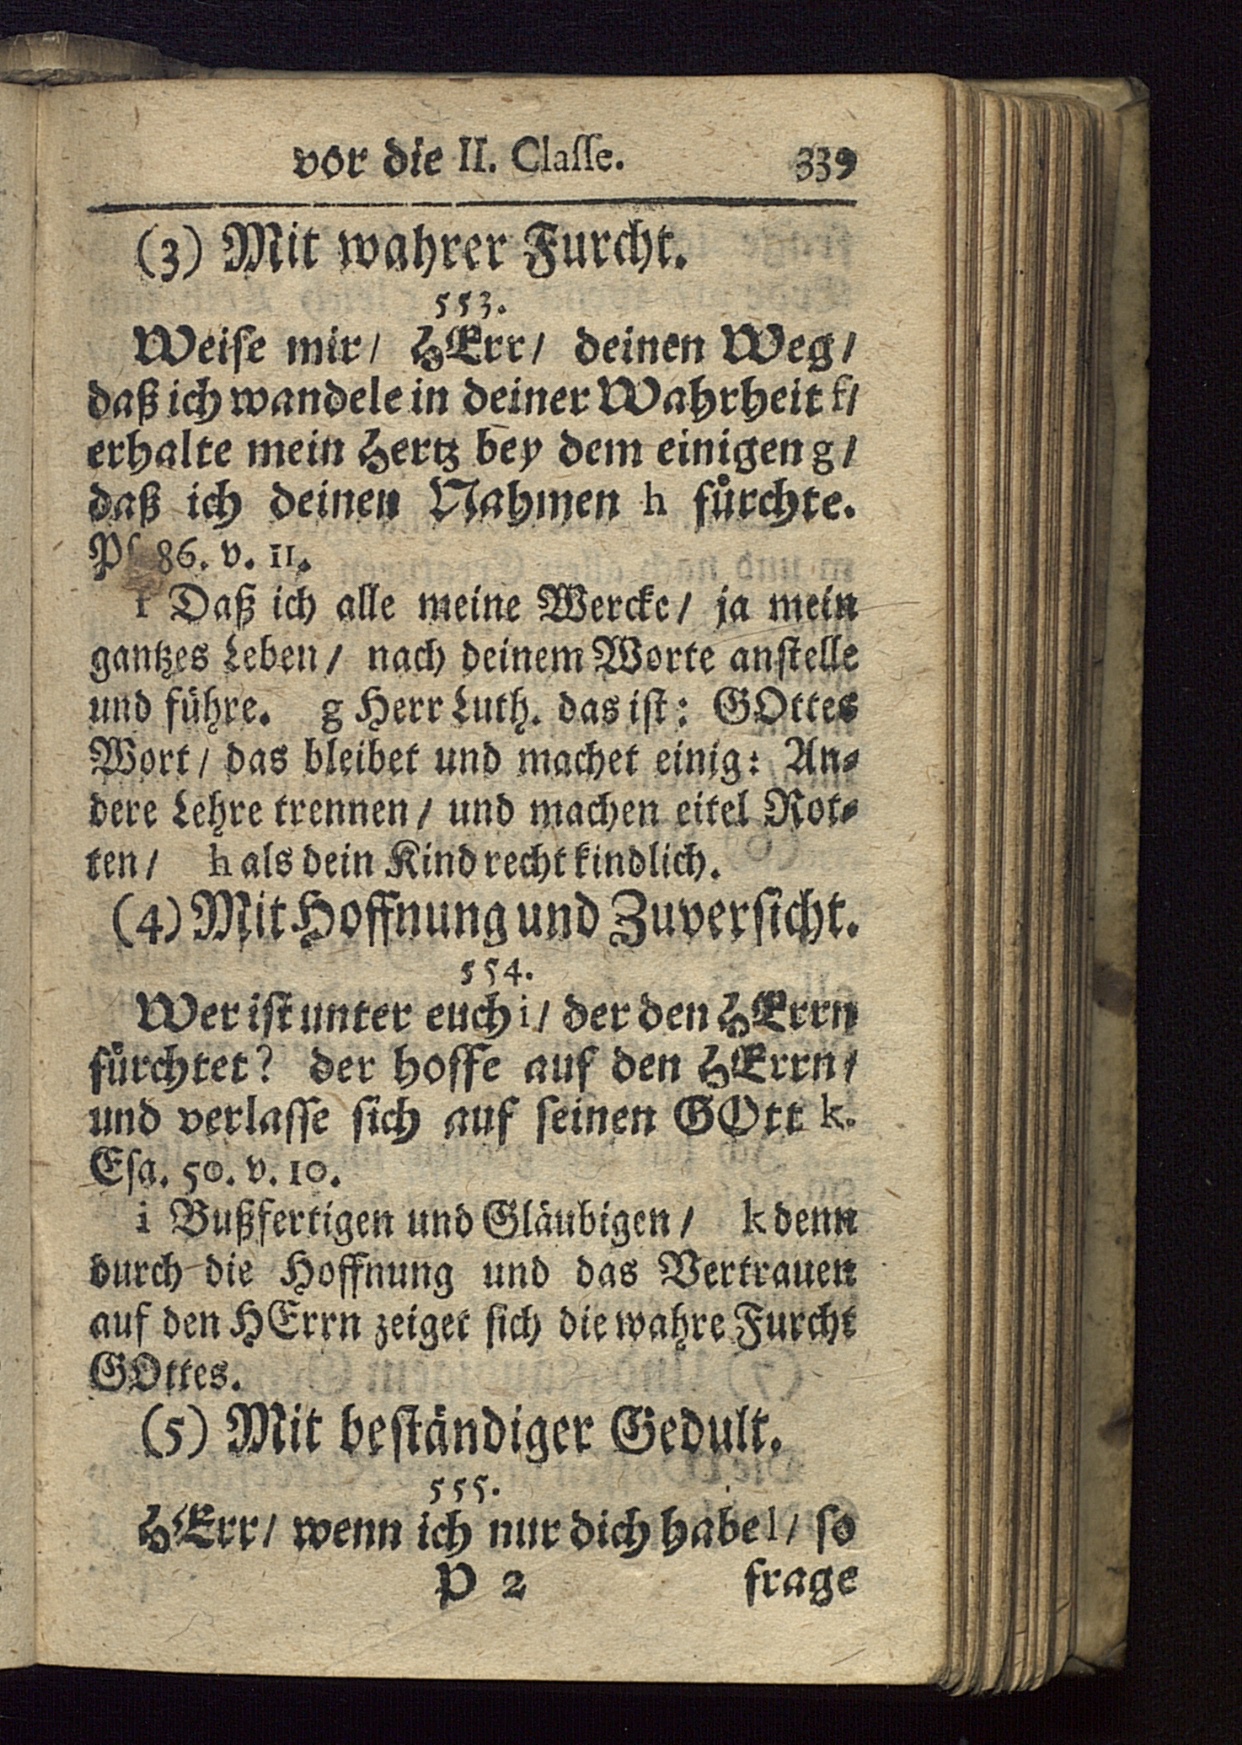 vor die II. Classe. 339
(3) Mit wahrer Furcht.
553.
Weise mir/ HErr/ deinen Weg/
daß ich wandele in deiner Wahrheit f/
erhalte mein Hertz bey dem einigen g/
daß ich deinen Nahmen h fürchte.
Ps 86. v. 11.
f Daß ich alle meine Wercke/ ja mein
gantzes Leben/ nach deinem Worte anstelle
und führe. g Herr Luth. das ist: GOttes
Wort/ das bleibet und machet einig: An-
dere Lehre trennen/ und machen eitel Rot-
ten/ h als dein Kind recht kindlich.
(4) Mit Hoffnung und Zuversicht.
554.
Wer ist unter euch i/ der den HErrn
fürchtet? der hoffe auf den HErrn/
und verlasse sich auf seinen GOtt k.
Esa. 50. v. 10.
i Bußfertigen und Gläubigen/ k denn
durch die Hoffnung und das Vertrauen
auf den HErrn zeiget sich die wahre Furcht
GOttes.
(5) Mit beständiger Gedult.
555.
HErr/ wenn ich nur dich habe l/ so
P 2 frage